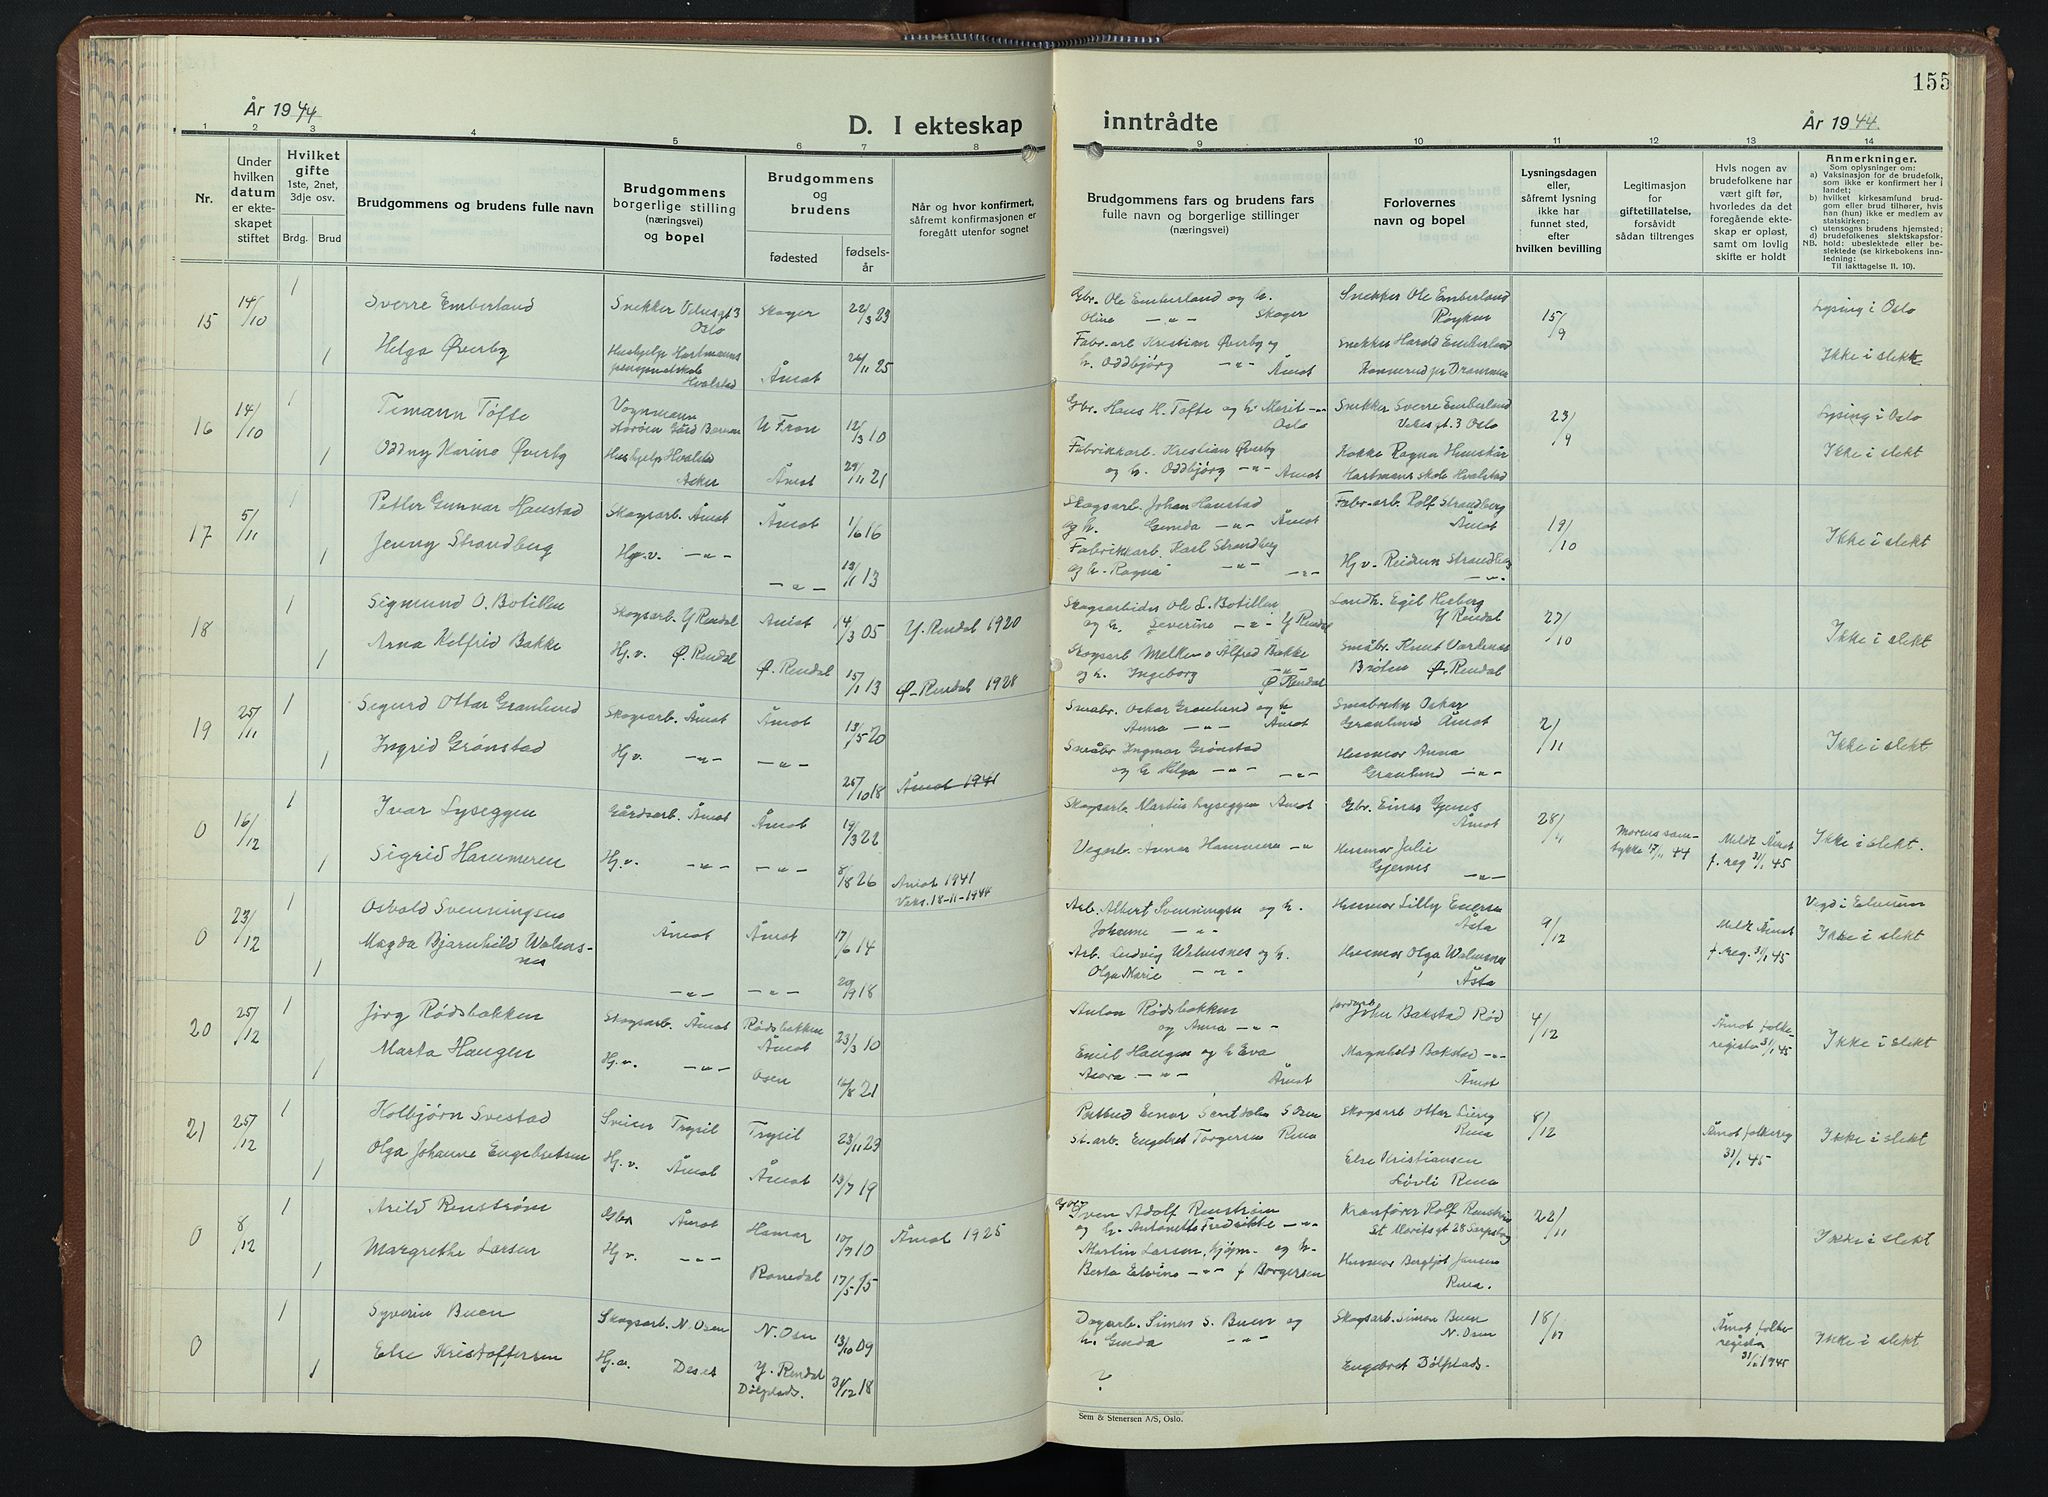 155
År 1944
D. I ekteskap
inntrådte
År 1944.
1 2 3 4 5 6 7 8 9 10 11 12 13 14
Nr.
Under
hvilken
datum
er ekte-
skapet
stiftet
Hvilket
gifte
1ste, 2net,
3dje osv.
Brdg. Brud
Brudgommens og brudens fulle navn
Brudgommens
borgerlige stilling
(næringsvei)
og bopel
Brudgommens
og
brudens
fødested
fødsels-
år
Når og hvor konfirmert,
såfremt konfirmasjonen er
foregått utenfor sognet
Brudgommens fars og brudens fars
fulle navn og borgerlige stillinger
(næringsvei)
Forlovernes
navn og bopel
Lysningsdagen
eller,
såfremt lysning
ikke har
funnet sted,
efter
hvilken bevilling
Legitimasjon
for
giftetillatelse,
forsåvidt
sådan tiltrenges
Hvis nogen av
brudefolkene har
vært gift før,
hvorledes da det
foregående ekte-
skap er opløst,
samt om lovlig
skifte er holdt
Anmerkninger.
Som oplysninger om:
a) Vaksinasjon for de brudefolk,
som ikke er konfirmert her i
landet;
b) hvilket kirkesamfund brud-
gom eller brud tilhører, hvis
han (hun) ikke er medlem av
statskirken;
c) utensogns brudens hjemsted;
d) brudefolkenes slektskapsfor-
NB. hold: ubeslektede eller be-
slektede (se kirkebokens inn-
ledning:
Til iakttagelse II, 10).
15 14/10 1 Sverre Emberland Snekker Skoger 22/3 23
Oslo
1 Helga Øverby Hushjelp Hartmanns
Hvalstad Åmot 26/11 25
Gbr. Ole Emberland og h.
Oline — " — Skoger
Fabr.arb. Kristian Øverby og
h. Oddbjørg — " — Åmot
Snekker Ole Emberland
Røyken
Snekker Harald Emberland
Konnerud pr Drammen
15/9
Lysing i Oslo
Ikke i slekt
16 14/10 1 Temann Tofte Vognmann
Gård Bærum N Fron 12/3 10
1 Oddny Karine Øverby Hushjelp Hvalstad
Asker Åmot 29/11 21
Gbr. Hans H. Tofte og h. Marit — " —
Oslo
Fabrikkarb. Kristian Øverby
og h. Oddbjørg — " — Åmot
Snekker Sverre Emberland
3 Oslo
Kokke Ragna
Hartmann skole Hvalstad
23/9
Lysing i Oslo
Ikke i slekt
17 5/11 1 Petter Gunvar Haustad Skogsarb. Åmot Åmot 1/6 16
1 Jenny Strandberg Hj.v. — " — — " — 13/11 13
Skogsarb. Johan Haustad
og h. Gunda — " — Åmot
Fabrikkarb. Karl Strandberg
og h. Ragna — " — — " —
Fabr.arb. Rolf Strandberg
Åmot
Hj.v. Reidun Strandberg
— " —
19/10
Ikke i slekt
18 1 Sigmund O. Botillen Skogsarb. Y Rendal Åmot 14/3 05 Y. Rendal 1920
1 Arna Kolfrid Bakke Hj.v. Ø. Rendal Ø. Rendal 15/1 13 Ø. Rendal 1928
Skogsarbeider Ole L. Botillen
og h. Severine — " — Y Rendal
Skogsarb Melker Alfred Bakke
og h. Ingeborg — " — Ø Rendal
Landh. Egil Herberg
Y Rendal
Småbr. Knut
Ø. Rendal
27/10
Ikke i slekt
19 25/11 1 Sigurd Ottar Granlund Skogsarb. Åmot Åmot 13/5 20
1 Ingrid Grønstad Hj.v. — " — — " — 25/10 18 Åmot 1941
Småbr. Oskar Granlund og h
Anna — " — Åmot
Småbr Ingmar Grønstad
og h Helga — " — — " —
Småbruker Oskar
Granlund Åmot
Husmor Anna
Granlund — " —
2/11
Ikke i slekt
0 16/12 1 Ivar Lyseggen Gårdsarb. Åmot Åmot 19/3 22
1 Sigrid Hammeren Hj.v. — " — — " — 8/8 26 Åmot 1941
Vaks. 18-11-1944
Skogsarb. Martin Lyseggen Åmot
Vegarb. Hammeren — " —
Gbr. Einar Gjerns
Åmot
Husmor Julie
Gjerns — " —
28/
Morens sam-
tykke 17/11 44
Meldt Åmot
f. reg 31/1 45
Ikke i slekt.
0 23/12 1 Osvald Svenningsen Åmot Åmot 17/6 14
1 Magda Bjarnhild Walens-
nes — " — — " — 20/9 18
Arb. Albert Svenningsen og h.
Johanne — " —
Arb. Ludvig Walensnes og h.
Olga Marie — " —
Husmor Lilly
Åsta
Husmor Olga Walensnes
Åsta
9/12
Meldt Åmot
f. reg. 31/1 45
Vigd i Elverum
Ikke i slekt
20 25/12 1 Jörg Rødsbakken Skogsarb. Åmot Rødsbakken
Åmot 23/3 10
1 Marta Haugen Hj.v. — " — Osen 16/8 21
Anton Rødsbakken
og Anna — " —
Emil Haugen og h Eva
— " — Åmot
John Bakstad Rød
Magnhild Bakstad — " —
Åmot
4/12
Åmot folke-
register 31/1 45
Ikke i slekt
21 25/12 1 Kolbjørn Svestad Sveiser Trysil Trysil 23/11 23
1 Olga Johanne Engebretsen Hj.v. Åmot Åmot 13/7 19
Postbud Einar S Osen
St.arb. Engebret Torgersen Rena
Skogsarb Ottar Lieng
Rena
Else Kristiansen
Løvli Rena
8/12
Åmot folkereg
31/1 45
Ikke i slekt
0 8/12 1 Arild Renstrøm Gbr Åmot Hamar 10/9 10 Åmot 1925
1 Margrethe Larsen Hj.v. — " — Romedal 17/5 15
Sven Adolf Renstrøm
og h. Antonette Fredrikke — " —
Martin Larsen, kjøpm. og h.
Berta Elvine — " — f Borgersen
Kranfører Rolf Renstrøm
28 Sarpsborg
Husmor Bergljot Jansen
Rena.
22/11
Ikke i slekt
0 1 Syverin Buen Skogsarb. N. Osen N. Osen 13/10 09
1 Else Kristoffersen Hj.v. Deset Y. Rendal
Dølplads. 31/12 18
Dagarb. Simen S. Buen og
h. Gunda — " —
?
Skogsarb. Simon Buen
N. Osen
Engebret Dølplads.
18/
Åmot folke
register
31/1 1945
Ikke i slekt
Sem & Stenersen A/S, Oslo.